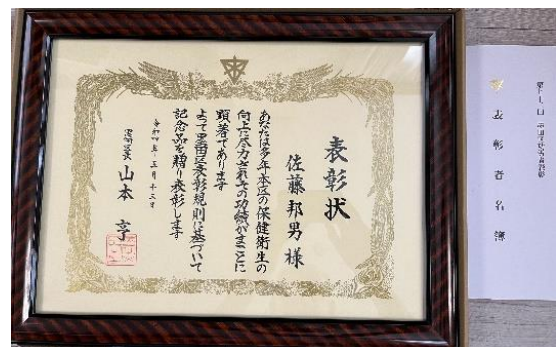 表彰状
佐藤邦男様
あなたは多年本区の保健衛生の
向上に尽力されその功績がまことに
顕著であります
よって墨田区表彰規則に基づいて
記念品を贈り表彰します
令和四年五月十三日
墨田区長 山本亨
表彰者名簿